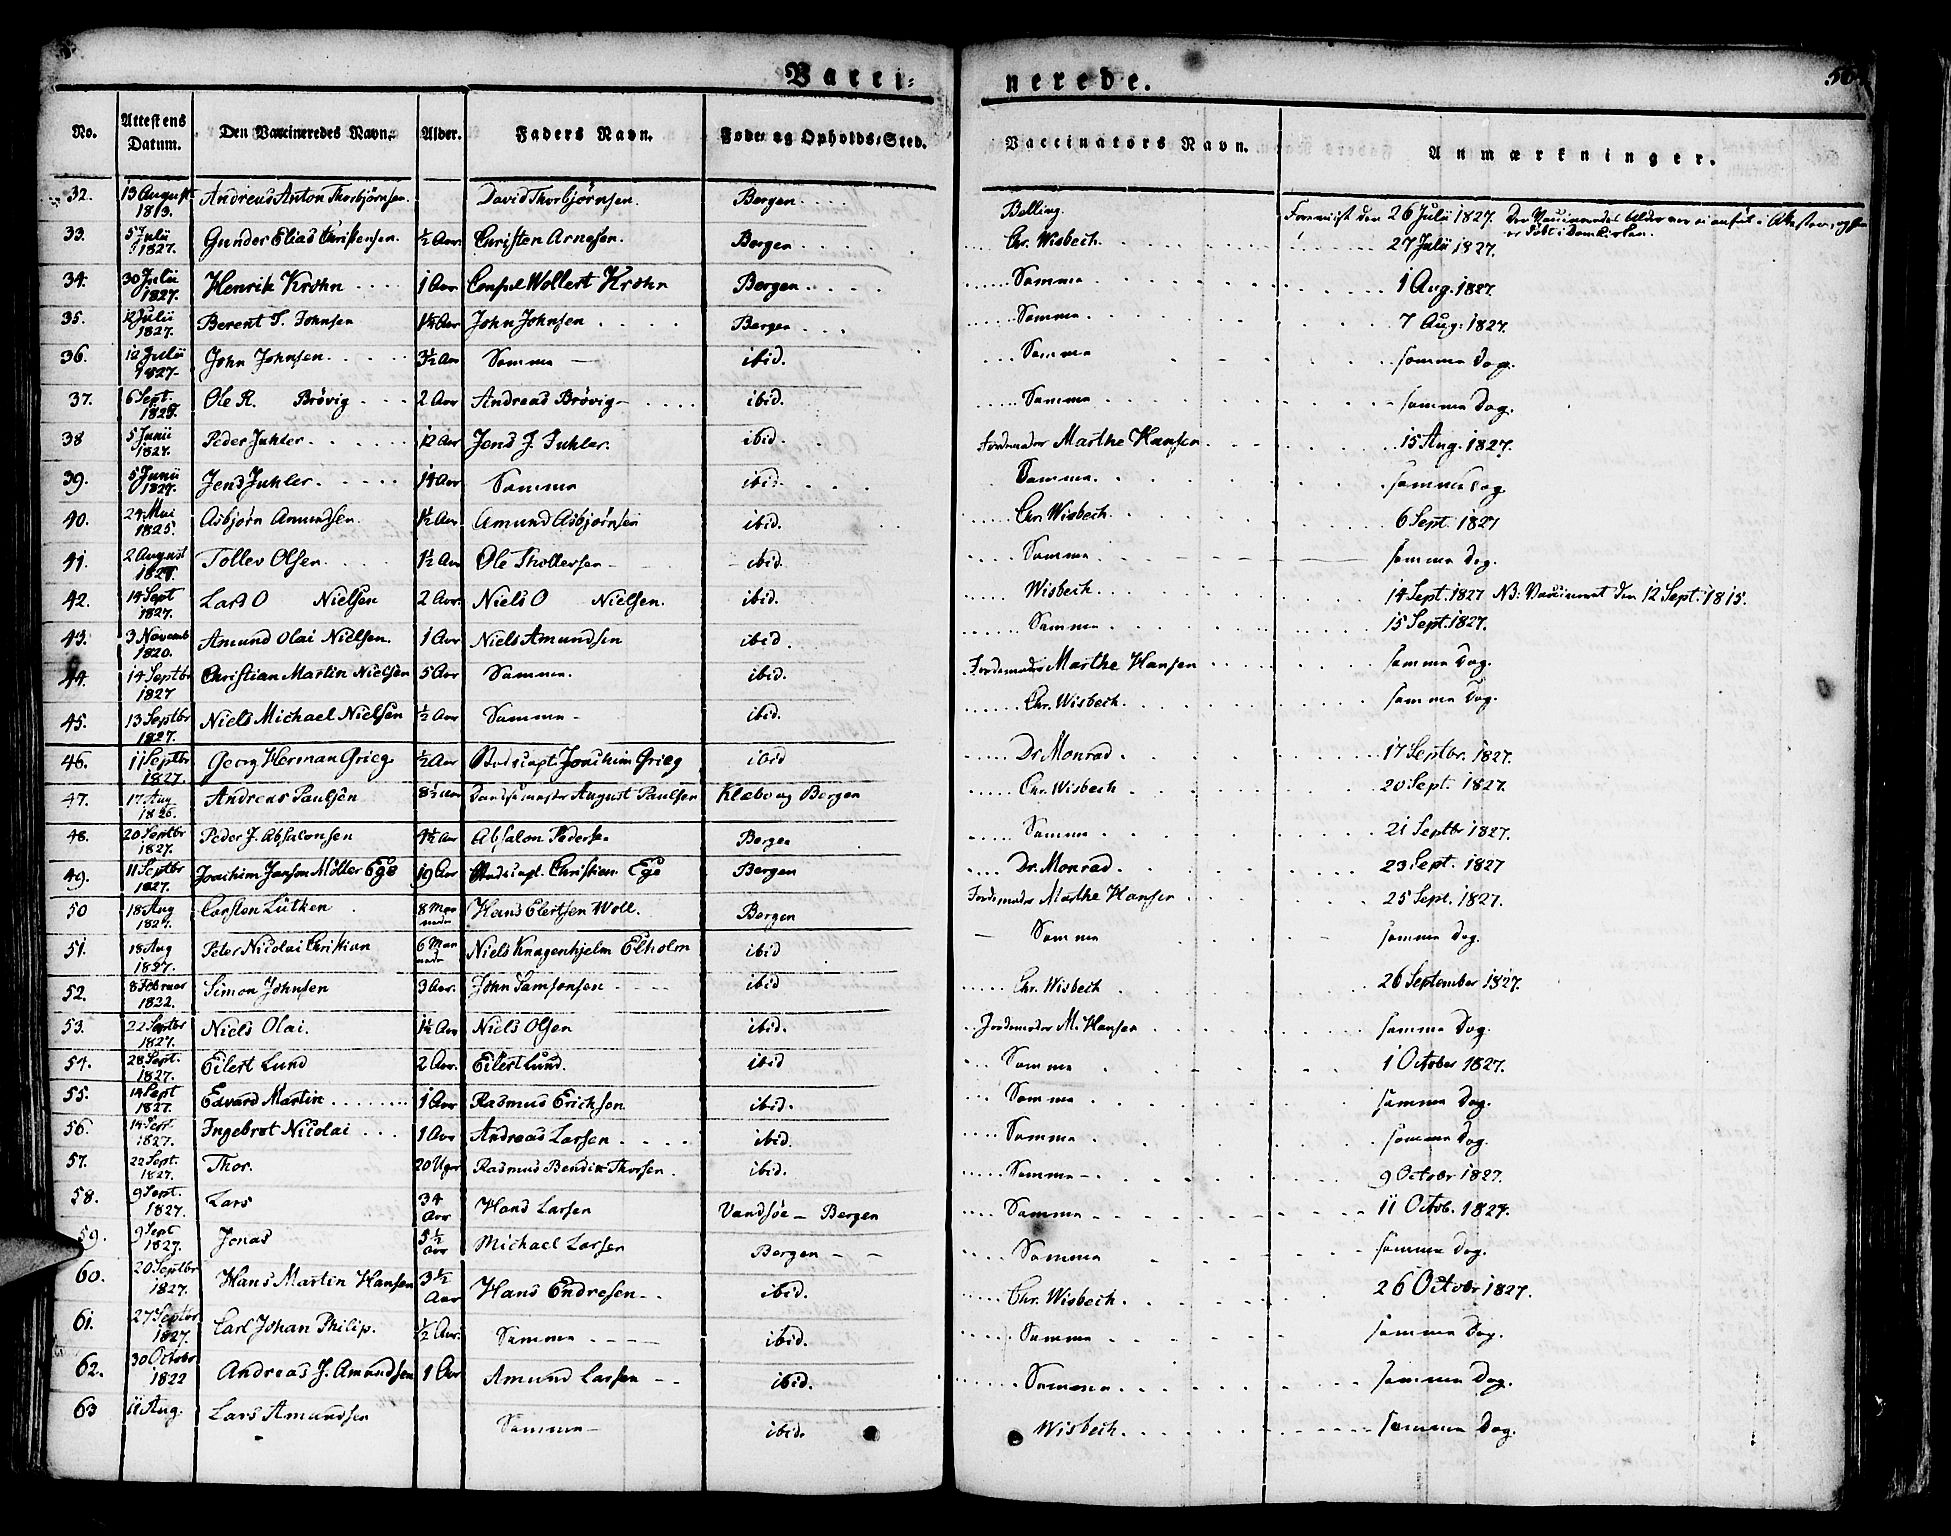 Vacci-
nerede.
No.
Attestens Datum.
Den Vaccineredes Navn.
Alder.
Faders Navn.
Føde og Opholds-Sted.
Vaccinators Navn.
Anmærkninger.
32. 13 August 1813. Andreas Anton Thorbjørnsen. David Thorbjørnsen. Bergen. Bolling. 26 Julii 1827.
33. Julii 1827. Gunder Elias Christensen. ½ Aar Christen Arnesen. Bergen Chr. Wisbech. 27 Julii 1827.
34. 30 Julii 1827. Henrik Krohn 1 Aar Consul Wollert Krohn Bergen Samme 1 Aug. 1827
35. 12 Julii 1827. Berent J. Johnsen Aar John Johnsen Bergen Samme 7 Aug. 1827.
36. 12 Julii 1827. John Johnsen. 3½ Aar Samme ibid. Samme samme Dag.
37. 6 Sept. Ole R. Brövig 2 Aar Andreas Brövig ibid. Samme samme Dag.
38 5 Junii 1827. Peder Juhler. 12 Aar Jens J. Juhler. ibid. Jordemoder Marthe Hansen 15 Aug. 1827.
39. 5 Junii 1827. Jens Juhler. 14 Aar Samme ibid. Samme. samme Dag
40. 24 Mai 1825. Asbjørn Amundsen. 1½ Aar Amund Asbjørnsen ibid. Chr. Wisbech. 6 Sept. 1827
41. 2 August Tollev Olsen. 1½ Aar Ole Thollersen ibid. Samme samme Dag.
42. 14 Sept 1827. Lars O Nielsen 2 Aar. Niels O Nielsen. ibid. Wisbech. 14 Sept. 1827 NB: Vaccineret den 12 Sept. 1815.
43. 3 Novemb 1820. Amund Olai Nielsen. 1 Aar Niels Amundsen ibid. Samme 15 Sept. 1827.
44. 14 Septbr 1827 Christian Martin Nielsen 5 Aar Samme. ibid. Jordemoder Marthe Hansen samme Dag.
45. 13 Septbr 1827. Niels Michael Nielsen ½ Aar Samme ibid. Chr. Wisbech. samme Dag.
46. 11 Septbr 1827. Georg Herman Grieg ½ Aar Joachim Grieg ibid Dr. Monrad. 17 Septbr. 1827.
47. 17 Aug 1826. Andreas Paulsen 8½ Aar August Paulsen Klæbo og Bergen Chr. Wisbech 20 Sept. 1827.
48. 20 Septbr 1827. Peder J. Absalonsen Aar Absalon Pedersen Bergen Samme 21 Septbr 1827.
49. 11 Septbr 1827. Joachim Janson Möller Ege 19 Aar Christian Ege Bergen Dr. Monrad. 23 Sept. 1827
50 18 Aug 1827. Carsten Lütken 8 Maaneder Hans Elertsen Woll. Bergen Jordemoder Marthe Hansen 25 Sept. 1827.
51. 18 Aug 1827. Peter Nicolai Christian 6 Maaneder Niels Knagenhjelm Elholm ibid Samme samme Dag.
52. 8 Februar 1822. Simon Johnsen 3 Aar. John Samsonsen ibid Chr. Wisbech 26 September 1827.
53. 22 Septbr 1827. Niels Olai. 1½ Aar Niels Olsen ibid. Jordemoder M. Hansen samme Dag.
54. 28 Sept. 1827. Eilert Lund 2 Aar. Eilert Lund. ibid Samme 1 October 1827.
55. 14 Sept 1827. Edvard Martin 1 Aar Rasmus Ericksen ibid. Samme samme Dag.
56. 14 Sept 1827. Ingebrot Nicolai 1 Aar Andreas Larsen ibid. Samme samme Dag.
57. 22 Sept. 1827. Thor. 20 Uger Rasmus Bendix Thorsen. ibid. Samme 9 October 1827.
58. 9 Sept. 1827. Lars 34 Aar Hans Larsen Vandsöe - Bergen Samme 11 Octob. 1827.
59. 9 Sept 1827. Jonas 5½ Aar Michael Larsen Bergen Samme samme Dag.
60. 20 Septbr 1827. Hans Martin Hansen 3½ Aar Hans Endresen ibid. Chr. Wisbech. 26 Octobr 1827.
61. 27 Septbr 1827. Carl Johan Philip. ½ Aar. Samme ibid. Samme samme Dag.
62. 30 Octobr 1822 Andreas J. Amundsen 1 Aar Amund Larsen ibid. Samme samme Dag.
63 11 Aug. Lars Amundsen Samme ibid. Wisbech. samme Dag.